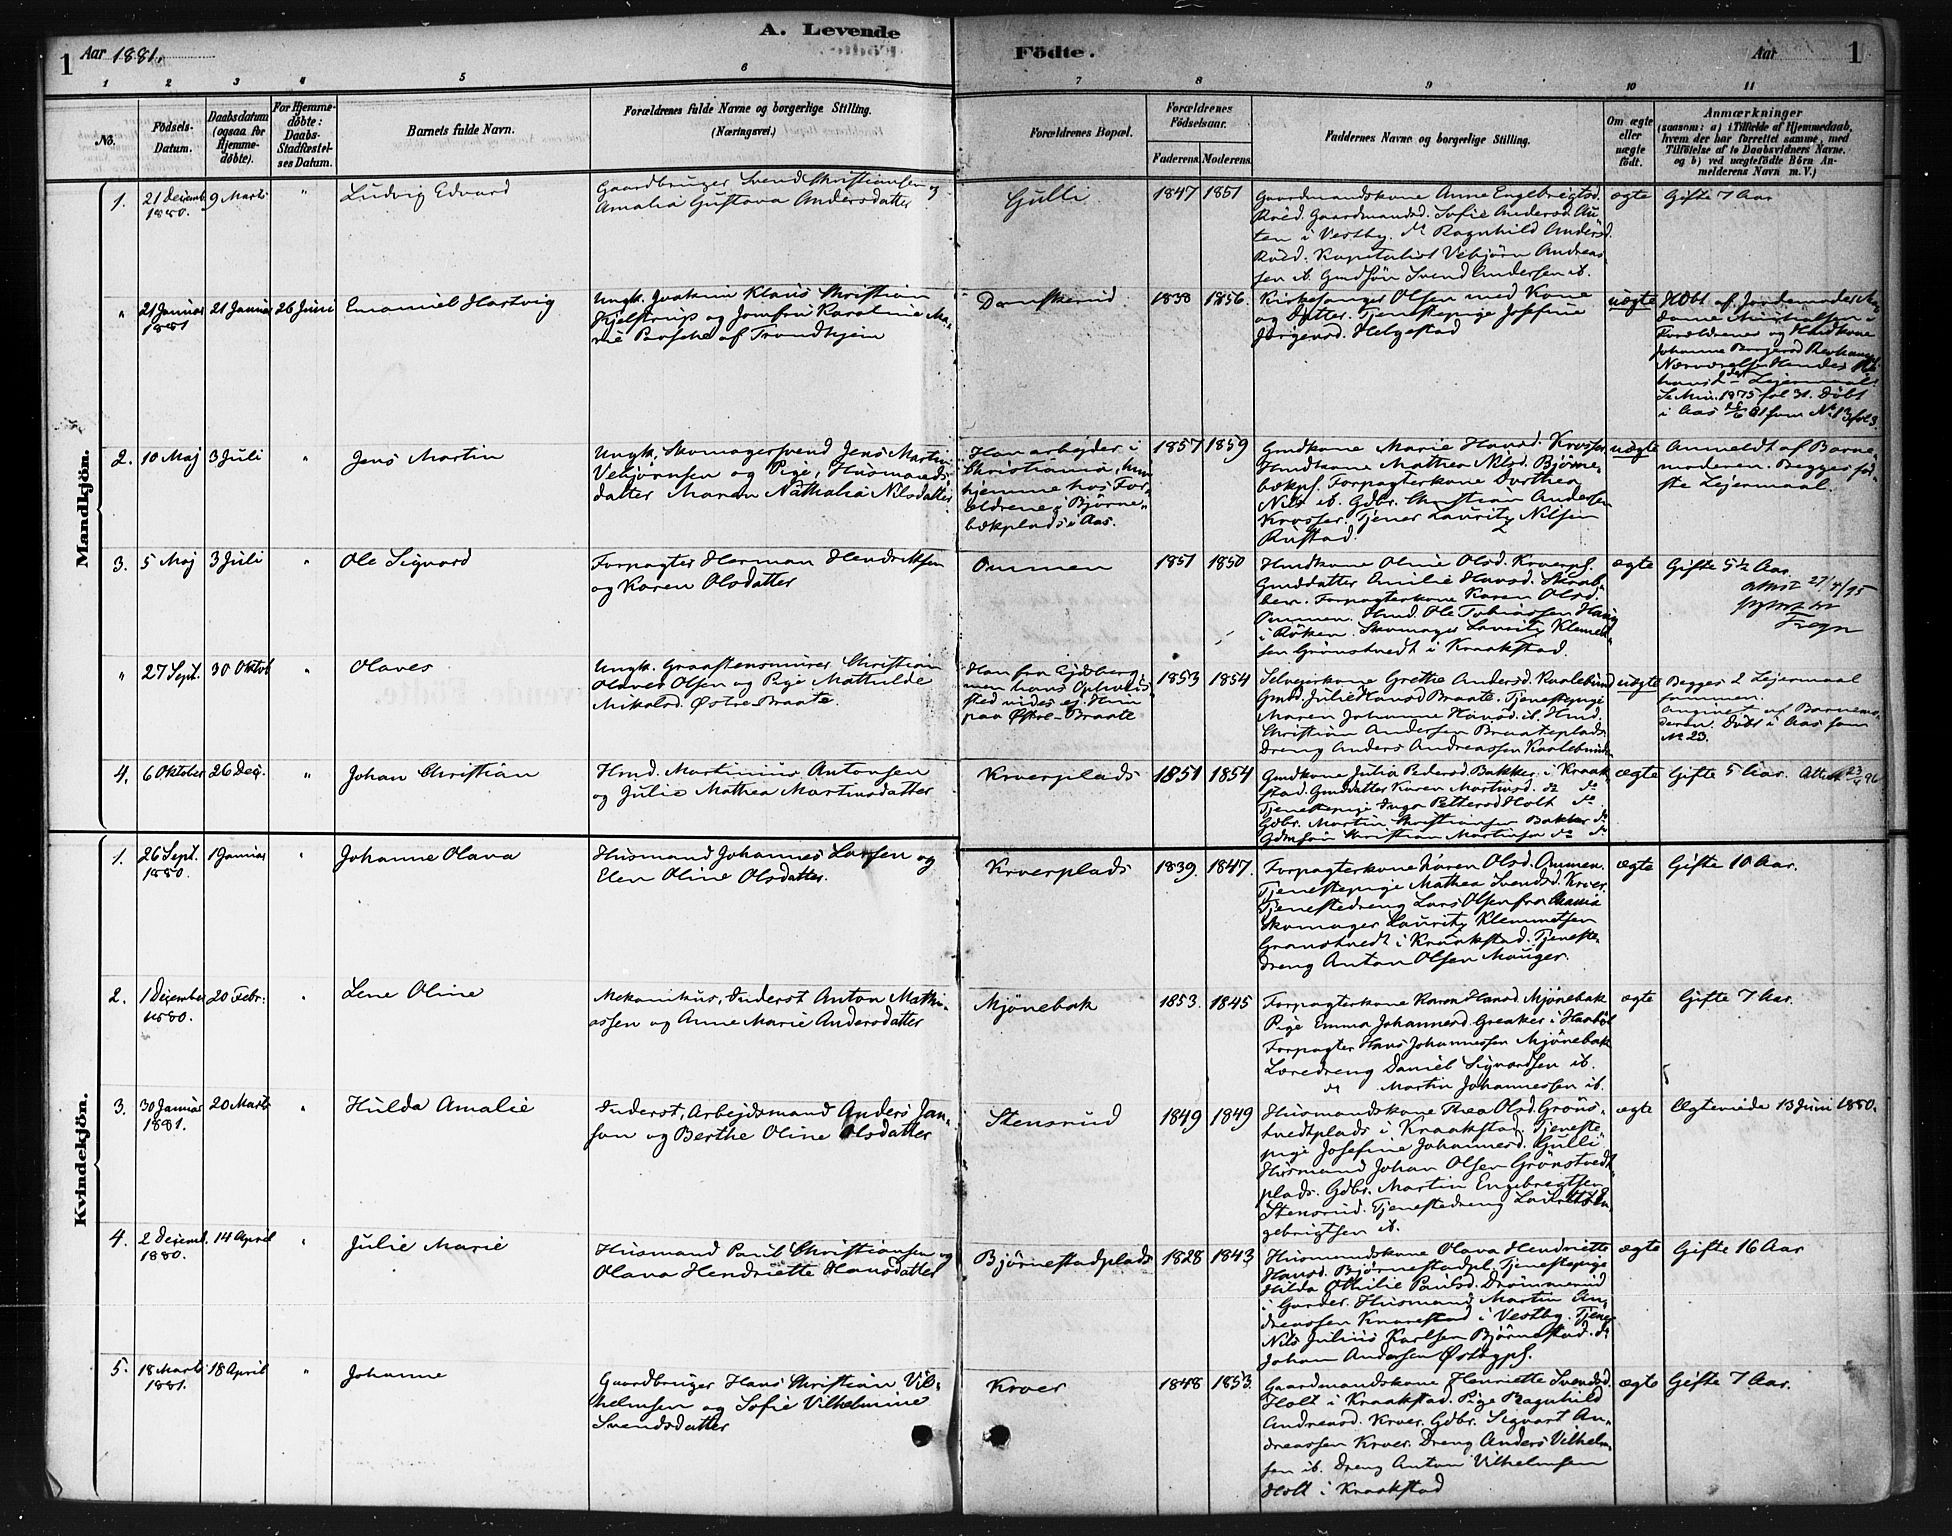 A. Levende
Födte.
1
Aar 1881.
Aar
1
1 2 3 4 5 6 7 8 9 10 11
No.
Födsels-
Datum.
Daabsdatum
(ogsaa for
Hjemme-
döbte).
For Hjemme-
döbte:
Daabs-
Stadfæstel-
ses Datum.
Barnets fulde Navn.
Forældrenes fulde Navne og borgerlige Stilling.
(Næringsvei.)
Forældrenes Bopæl.
Forældrenes
Födselsaar.
Faderens.
Moderens.
Faddernes Navne og borgerlige Stilling.
Om ægte
eller
uægte
födt.
Anmærkninger
(saasom: a) i Tilfælde af Hjemmedaab,
hvem der har forrettet samme, med
Tilföielse af to Daabsvidners Navne,
og b) ved uægtefödte Börn An-
melderens Navn m. V.)
Mandkjön.
1.
21 Decemb.
1880.
9 Marts
"
Ludvig Edvard
Gaardbruger Svend Christiansen og
Amalia Gustava Andersdatter
Gulli
1847
1851
Gaardmandskone Anne Engebrigtsd.
Röed. Gaardmandsd. Sofie Andersd. Au-
ten i Vestby. do Ragnhild Andersd.
Röed. Kapitalist Vebjörn Andreas-
sen ib. Gmdsön Svend Andersen ib.
ægte
Gifte 7 Aar
"
21 Januar
1881
21 Januar
26 Juni
Emanuel Hartvig
Ungk. Joakim Klaus Christian
Kjelstrup og Jomfru Karoline Ma-
rie Posche af Trondhjem
Danskerud
1838
1856.
Kirkesanger Olsen med Kone
og Datter. Tjenestepige Josefine
Jörgensd. Helgestad
uægte
Hdbt. af Jordemoder Ma-
Forældrene og Husdkone
i Aas 26/6 81 som No 13 fol 3.
2.
10 Maj
3 Juli
"
Jens Martin
Ungk. Skomagersvend Jens Martin
Vebjörnsen og Pige, Husmands-
datter Maren Nathalia Nilsdatter
Han arbejder i
Christiania, hun
hjemme hos For-
ældrene, Björne-
bækplads i Aas.
1857
1859
Gmdkone Marie Hansd. Krosser
Husmdkone Mathea Nilsd. Björne-
bækpl. Forpagterkone Dorthea
Nils. ib. Gdbr. Christian Andersen
Krosser. Tjener Lauritz Nilsen
Rustad.
uægte
Anmeldt af Barne-
moderen. Begges för-
ste Lejermaal.
3.
5 Maj
3 Juli
"
Ole Sigvard
Forpagter Herman Hendriksen
og Karen Olsdatter
Ommen
1851
1850
Husmdkone Oline Olsd. Kroerpl.
Gmddatter Amilie Hansd. Skrab-
ben. Forpagterkone Karen Olsd.
Ommen. Hmd. Ole Tobiassen Haug
i Röken. Skomager Lauritz Klemet-
sen Grönstvedt i Kraakstad.
ægte
Gifte 5½ Aar.
attest 27/4/95
Frogn
"
27 Sept.
30 Oktob
"
Olaves
Ungk. Graastensmurer Christian
Olaves Olsen og Pige Mathilde
Nikolsd. Östre-Braate.
Han fra Eidsberg
men hans Opholds-
sted vides ej. Hun
paa Östre-Braate
1853
1854
Selvejerkone Grethe Andersd. Kaalebund
Gmd. Julie Hansd. Braate. Tjenestepige
Maren Johanne Hansd. ib. Hmd.
Christian Andersen Braateplads.
Dreng Anders Andreassen Kaalebund.
uægte
Begges 2 Lejermaal
sammen.
angivet af Barnemo-
deren. Döbt i Aas som
No 23.
4.
6 Oktober
26 Dec.
"
Johan Christian
Hmd. Martinius Antonsen
og Julie Mathea Martinsdatter
Kroerplads
1851
1854
Gmdkone Julia Pedersd. Bakker i Kraak-
stad. Gmddatter Karen Martinsd. do do
Tjenestepige Inga Pettersd Holt do
Gdbr. Martin Christiansen Bakker do
Gdmsön Christian Martinsen do do
ægte
Gifte 5 Aar. Attest 23/4 96
Kvindekjön.
1.
26 Sept.
1880.
1 Januar
"
Johanne Olava
Husmand Johannes Larsen og
Elen Oline Olsdatter.
Kroerplads
1839.
1847.
Forpagterkone Karen Olsd. Ommen.
Tjenestepige Mathea Svendsd. Kroer.
Tjenestedreng Lars Olsen fra Chania
Skomager Lauritz Klemmetsen
Grönstvedt i Kraakstad. Tjeneste-
dreng Anton Olsen Mauger.
ægte
Gifte 10 Aar.
2.
1 December
1880.
20 Febr:
"
Lene Oline
Mekanikus, Inderst Anton Mathi-
assen og Anne Marie Andersdatter
Mjönebak
1853.
1845
Forpagterkone Karen Hansd. Mjönebak
Pige Emma Johannesd. Greaker i Haaböl
Forpagter Hans Johannessen Mjönebak
Læredreng Daniel Sigvardsen ib.
do Martin Johannessen ib.
ægte
Gifte 7 Aar.
3.
30 Januar
1881.
20 Marts
"
Hulda Amalie
Inderst, Arbejdsmand Anders Jan-
sen og Berthe Oline Olsdatter
Stensrud
1849
1849
Husmandskone Thea Olsd. Gröns-
tvedtplads i Kraakstad. Tjeneste-
pige Josefine Johannesd. Gulli
Husmand Johan Olsen Grönstvedt-
plads. Gdbr. Martin Engebregtsen
Stensrud. Tjenestedreng Laurits En-
gebrigtsen ib.
ægte
Ægteviede 13 Juni 1880.
4.
2 Decemb.
1880.
14 April
"
Julie Marie
Husmand Paul Christiansen og
Olava Hendriette Hansdatter
Björnestadplads
1828
1843
Husmandskone Olava Hendriette
Hansd. Björnestadpl. Tjenestepige
Hilda Othilie Paulsd. Drömmerud
i Garder. Husmand Martin An-
dreassen Knarestad i Vestby. Tjener
Nils Julius Karlsen Björnestad. do
Johan Andersen Östbypl.
ægte
Gifte 16 Aar
5.
18 Marts
1881.
18 April
"
Johanne
Gaardbruger Hans Christian Vil-
helmsen og Sofie Vilhelmine
Svendsdatter
Kroer
1848
1853.
Gaardmandskone Henriette Svendsd.
Holt i Kraakstad. Pige Ragnhild
Andreasd. Kroer. Gdbr. Sigvart An-
dreassen Kroer. Dreng Anders Vilhelm-
sen ib. Dreng Anton Vilhelmsen
Holt i Kraakstad
ægte
Gifte 7 Aar.